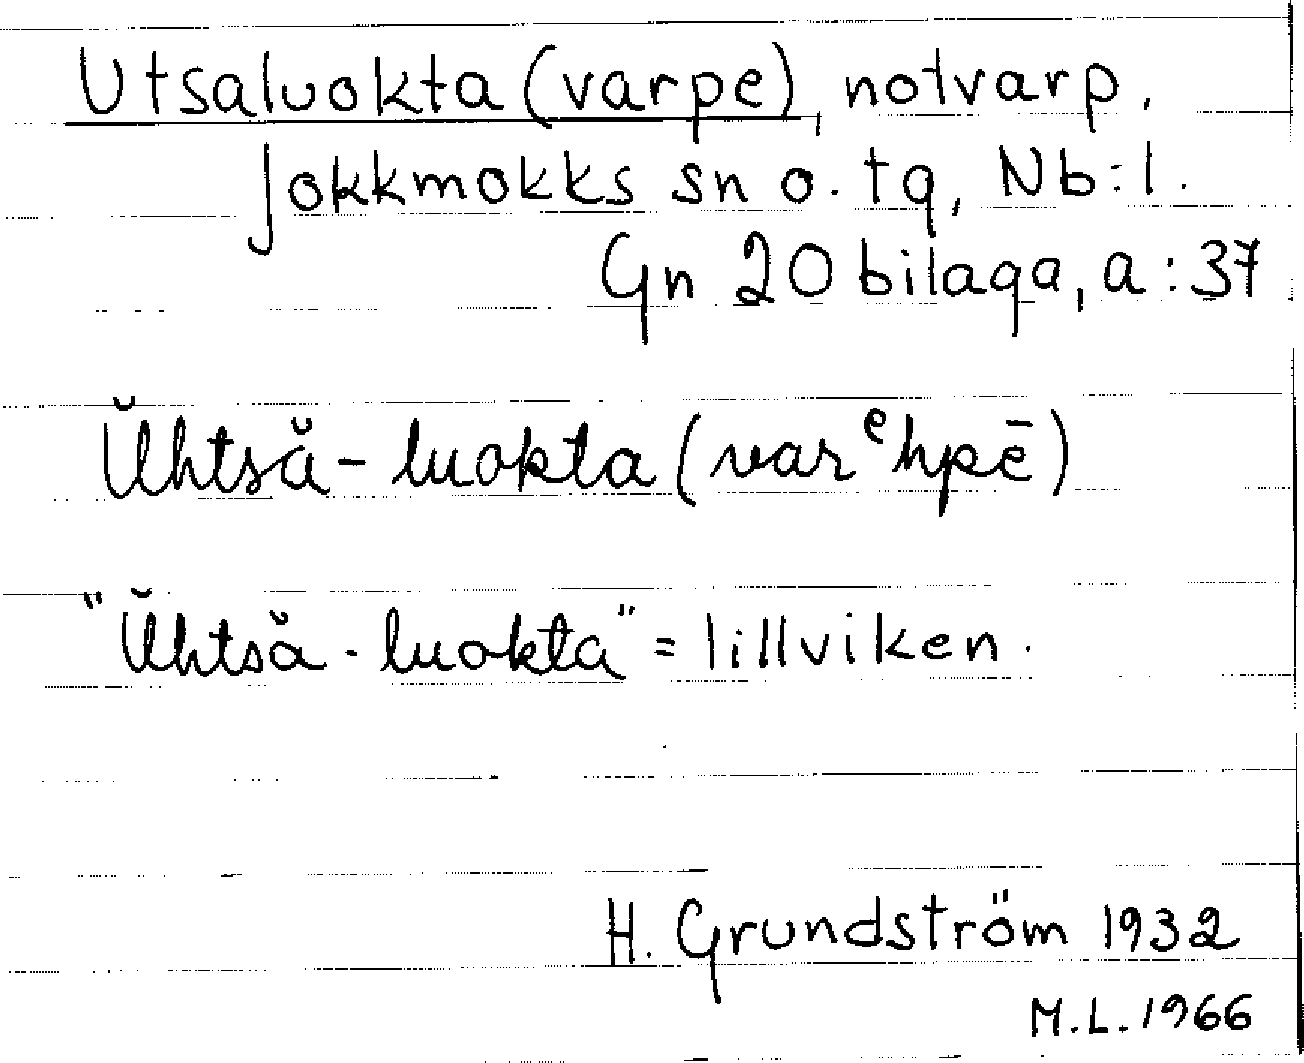 Utsaluokta (varpe), notvarp.
Jokkmokks sn o. tg, Nb:l.
Gn 20 bilaga, a:37
Ŭhtsă-luokta (varᵉhpē)
"Ŭhtsă-luokta" = lillviken.
H. Grundström 1932
M.L. 1966